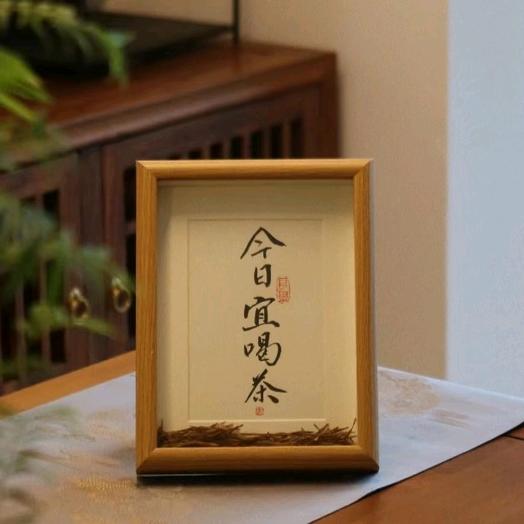 今日宜喝茶